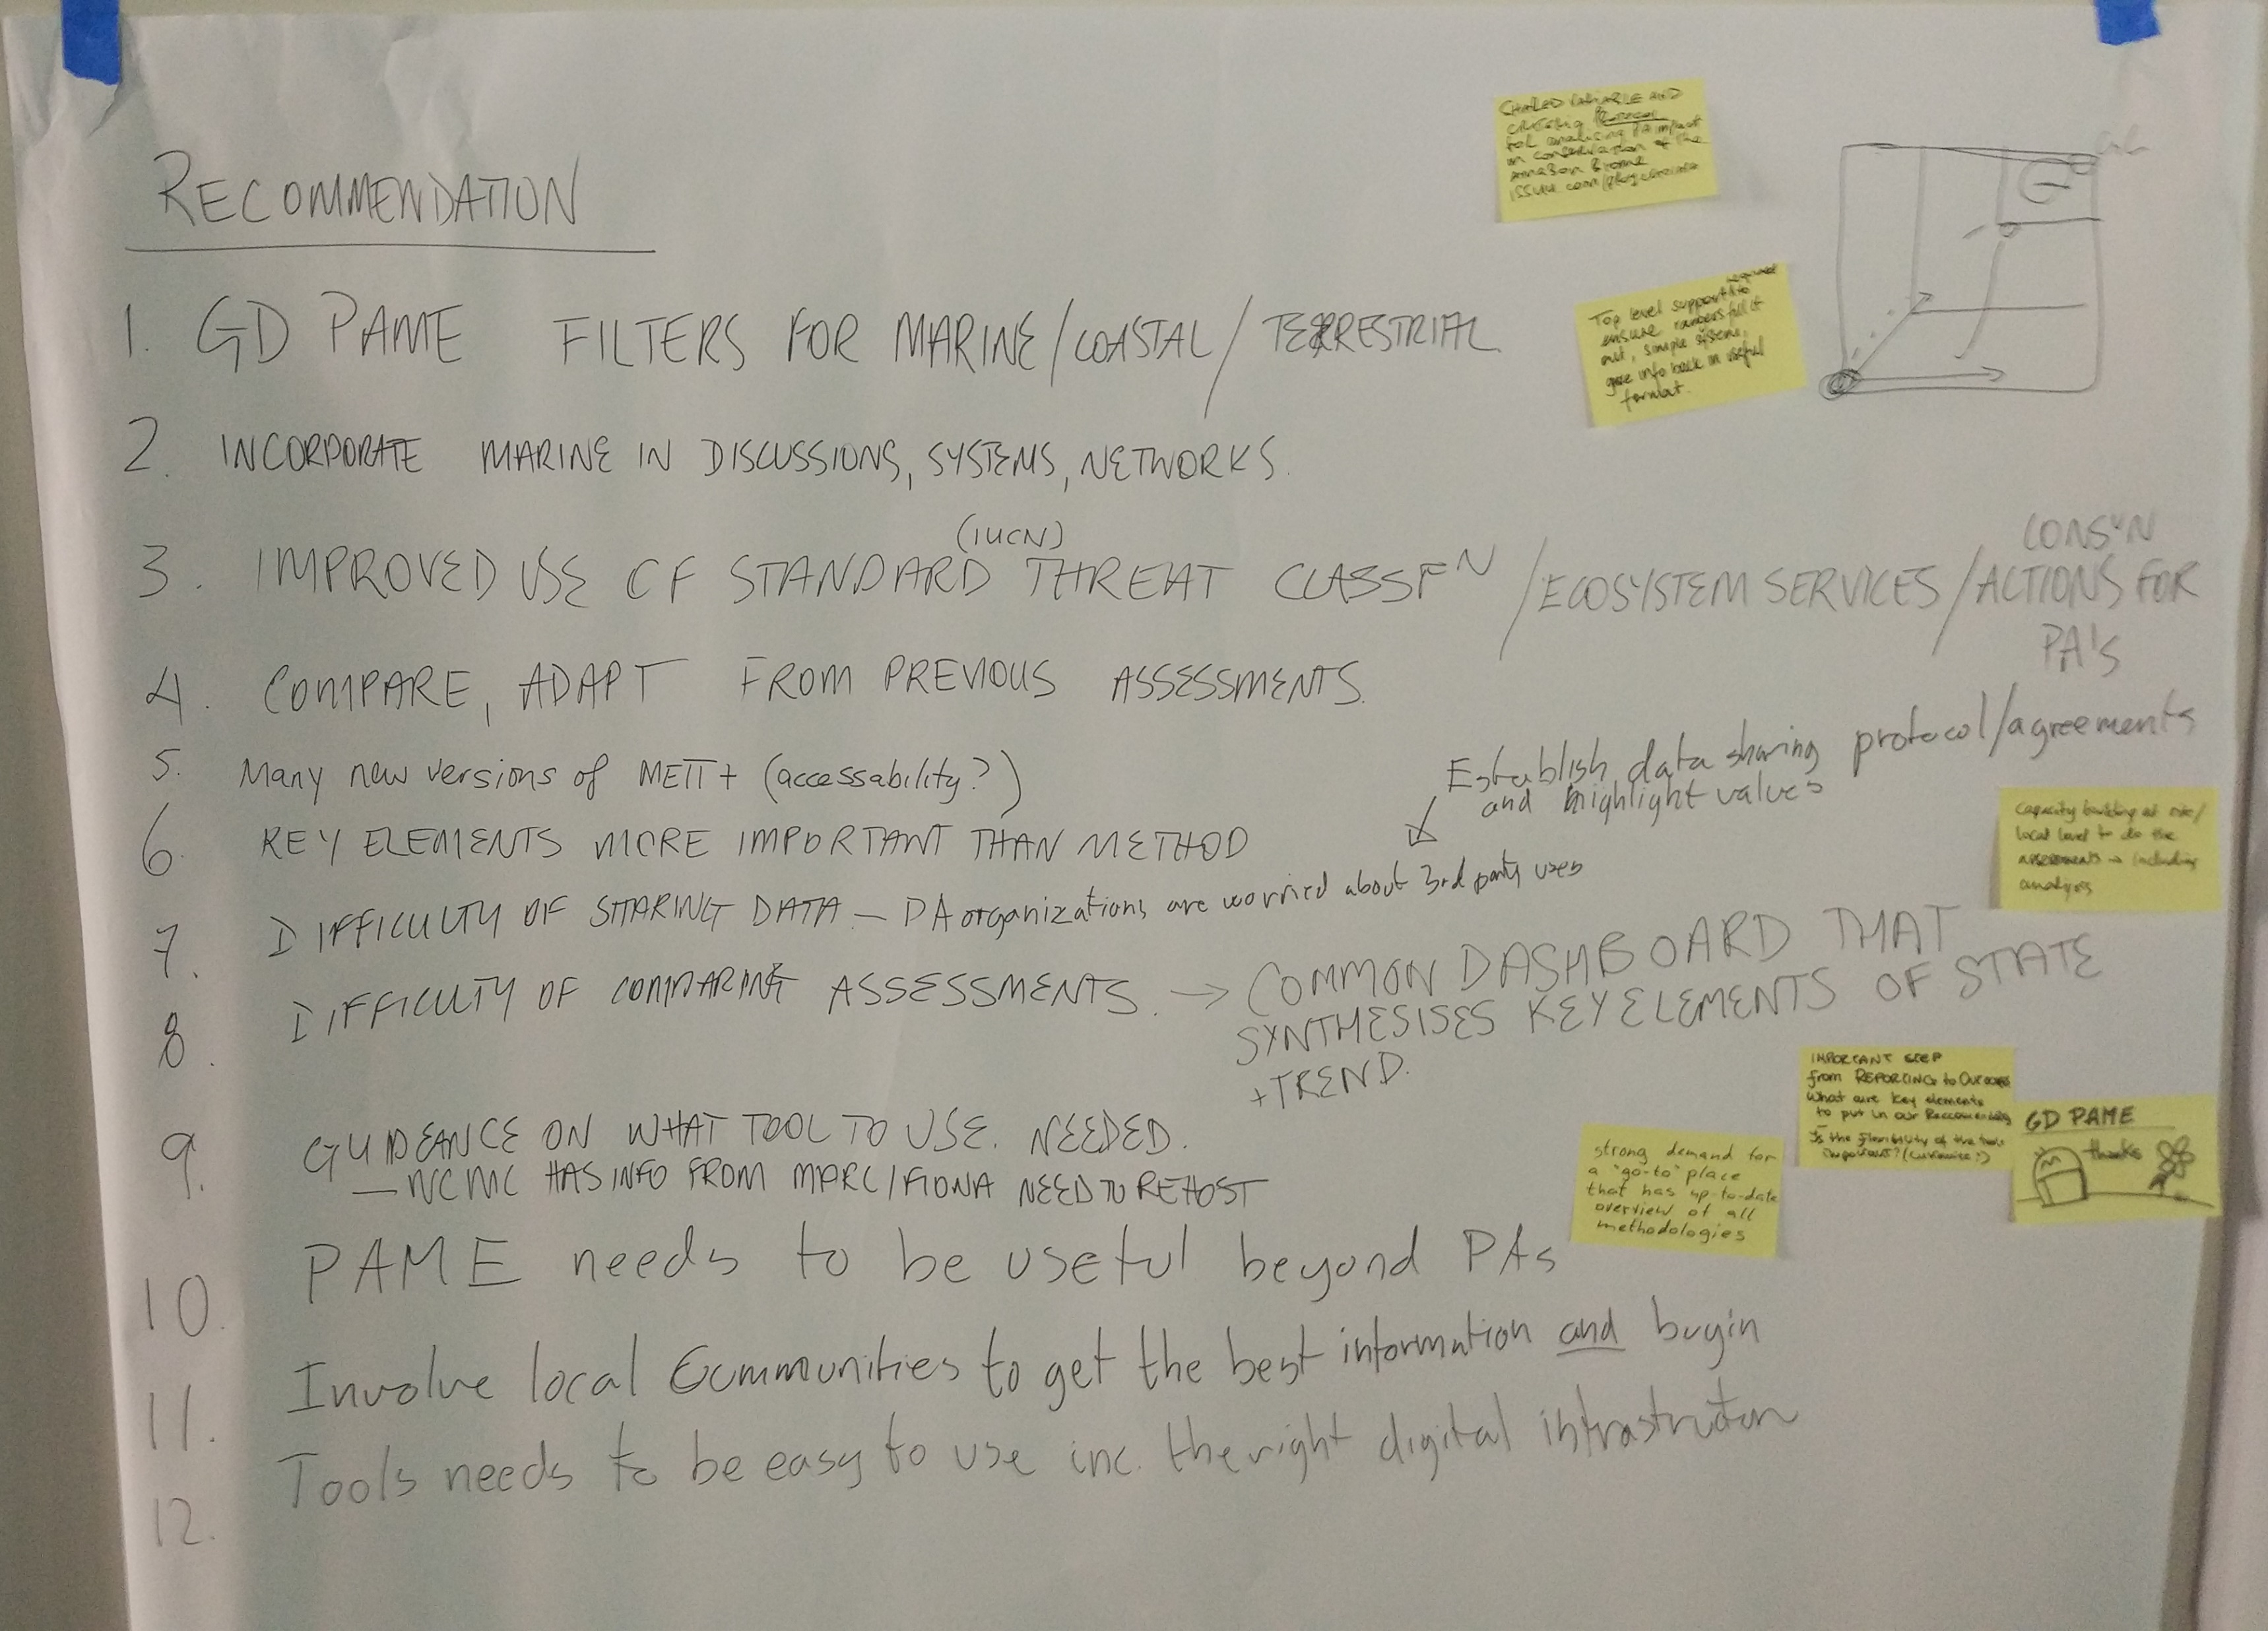 RECOMMENDATION
1. GD PAME FILTERS FOR MARINE/COASTAL/TERRESTRIAL
2. INCORPORATE MARINE IN DISCUSSIONS, SYSTEMS, NETWORKS.
(IUCN)
3. IMPROVED USE OF STANDARD THREAT CLASSFN /ECOSYSTEM SERVICES/
CONS'N
ACTIONS FOR
PA's
4. COMPARE, ADAPT FROM PREVIOUS ASSESSMENTS.
5. Many new versions of METT + (accessability?)
6. KEY ELEMENTS MORE IMPORTANT THAN METHOD
Establish data sharing protocol/agreements
and highlight values
7. DIFFICULTY OF SHARING DATA - PA organizations are worried about 3rd party uses
8. DIFFICULTY OF COMPARING ASSESSMENTS. → COMMON DASHBOARD THAT
SYNTHESISES KEY ELEMENTS OF STATE
+ TREND.
9. GUIDEANCE ON WHAT TOOL TO USE. NEEDED.
— WCMC HAS INFO FROM MARC/FIONA NEED TO REHOST
10. PAME needs to be useful beyond PAs
11. Involve local communities to get the best information and buyin
12. Tools needs to be easy to use inc. the right digital
AND
for analizing PA impact
in conservation of the
Amazon Biome
Top level support
to
ensure
out, simple
give info back in useful
format.
Capacity building at site/
local level to do the
assessments → including
analysis
IMPORTANT STEP
from REPORTING to
What are key elements
to put in our
Is the flexibility of the tools
important?
GD PAME
thanks
strong demand for
a "go-to" place
that has up-to-date
overview of all
methodologies